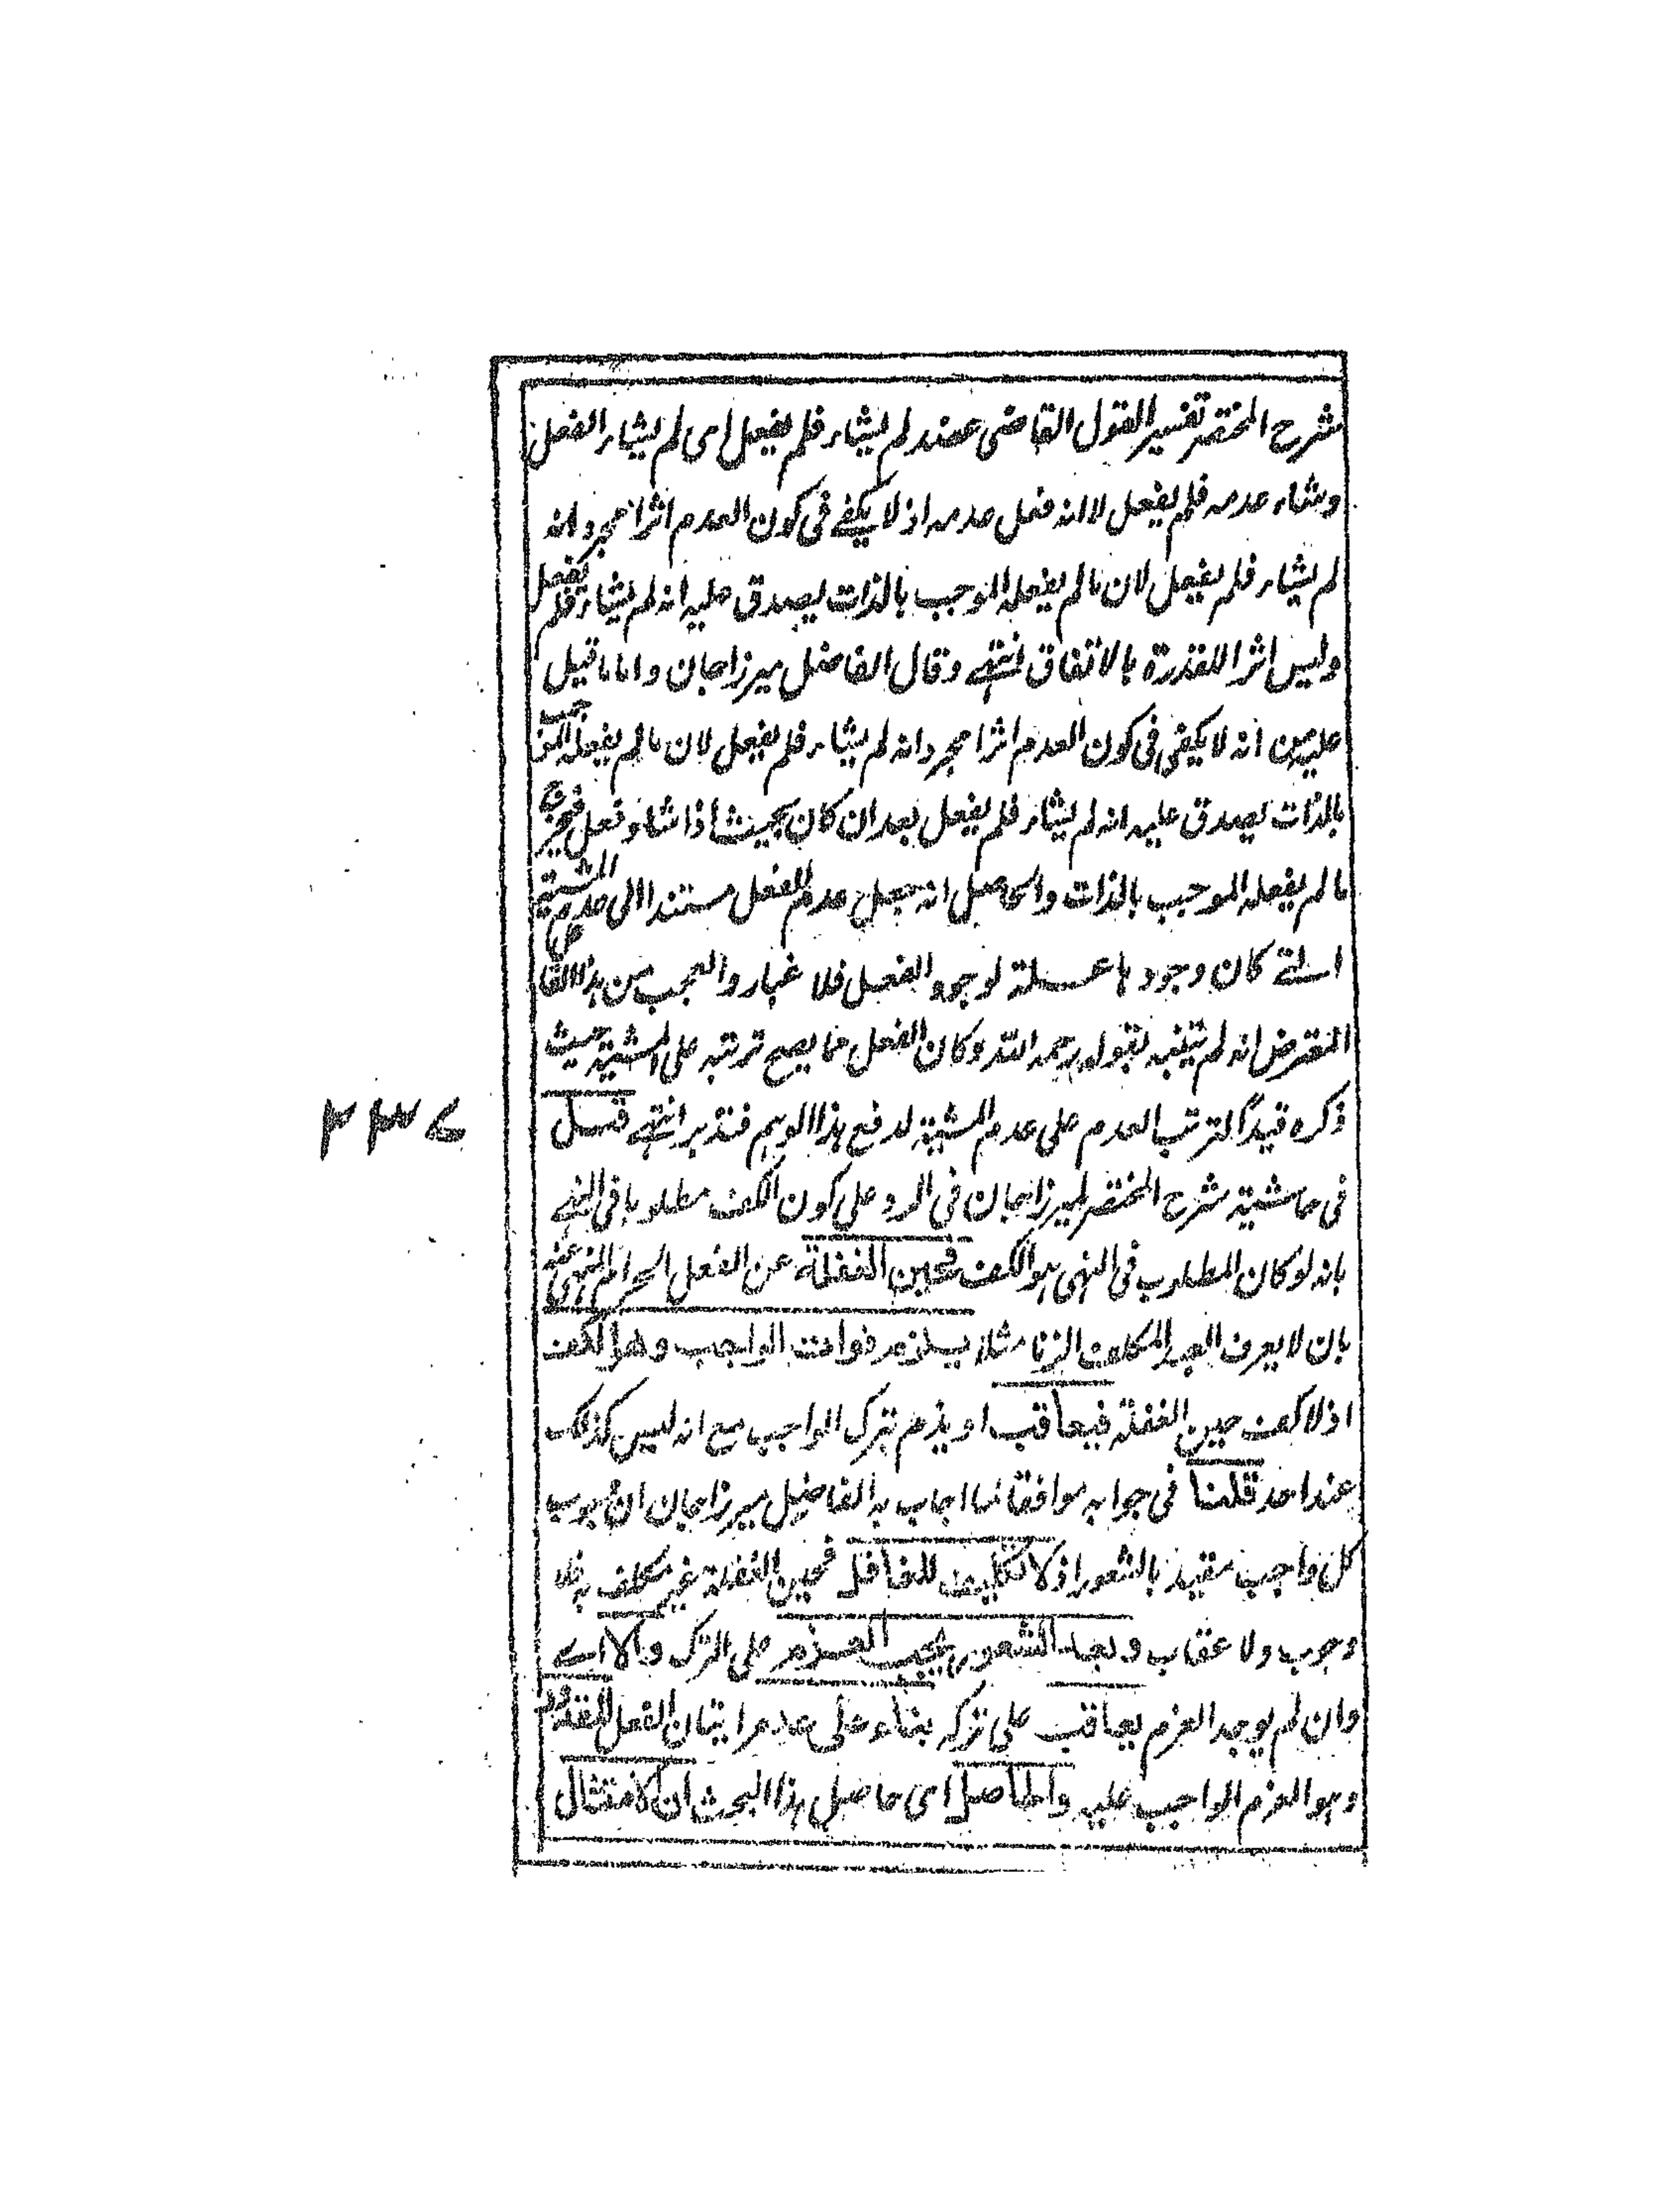 شرح المختصر تفسير القول القاضى عضد لم يشاء فلم يفعل اى لم يشاء الفعل
وشاء عدمه فلم يفعل لا انه فعل عدمه اذ لا يكفے فى كون العدم اثرا مجرد انه
لم يشاء فلم يفعل لان ما لم يفعله الموجب بالذات يصدق عليه انه لم يشاء فلم يفعل
وليس اثرا للقدرة بالاتفاق انتهے وقال الفاضل ميرزاجان واما ما قيل
عليه من انه لا يكفى فى كون العدم اثرا مجرد انه لم يشاء فلم يفعل لان ما لم يفعله الموجب
بالذات يصدق عليه انه لم يشاء فلم يفعل بعد ان كان بحيث اذا شاء فعل فخرج
ما لم يفعله الموجب بالذات والحاصل انه جعل عدم الفعل مستندا الى عدم المشية
التے كان وجودها علة لوجود الفعل فلا غبار والعجب من هذا القاض
المعترض انه لم يتنبه بقوله رحمه الله وكان الفعل مما يصح ترتبه على المشية حيث
ذكره قيدا لترتب العدم على عدم المشية لدفع هذا الوهم فتدبر انتهے قيل
فى حاشية شرح المختصر لميرزاجان فى الرد على كون الكف مطلوبا فى النهے
بانه لو كان المطلوب فى النهى هو الكف فحين الغفلة عن الفعل الحرام المنهى عنه
بان لا يعرف العبد المكلف الزنا مثلا يلزم فوات الواجب وهو الكف
اذ لا كف حين الغفلة فيعاقب او يذم بترك الواجب مع انه ليس كذلك
عند احد قلنا فى جوابه موافقا لما اجاب به الفاضل ميرزاجان ان وجوب
كل واجب مقيد بالشعور اذ لا تكليف للغافل فحين الغفلة غير مكلف به فلا
وجوب ولا عقاب وبعد الشعور يجب العزم على الترك والا اے
وان لم يوجد العزم يعاقب على تركه بناء على عدم اتيان الفعل المقدور
وهو العزم الواجب عليه والحاصل اى حاصل هذا البحث ان الامتثال